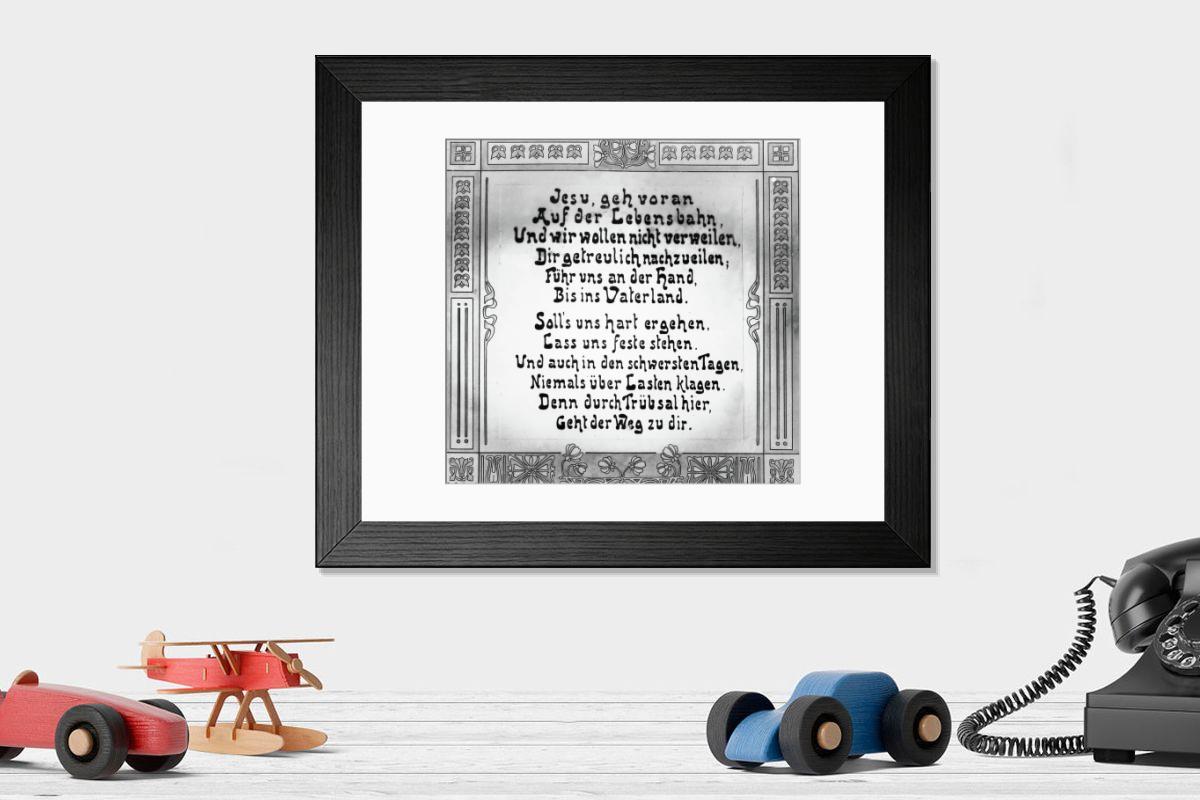 Jesu, geh voran
Auf der Lebensbahn,
Und wir wollen nicht verweilen,
Dir getreulich nachzueilen;
Führ uns an der Hand,
Bis ins Vaterland.
Soll's uns hart ergehen,
Lass uns feste stehen.
Und auch in den schwersten Tagen,
Niemals über Lasten klagen.
Denn durch Trübsal hier,
Geht der Weg zu dir.